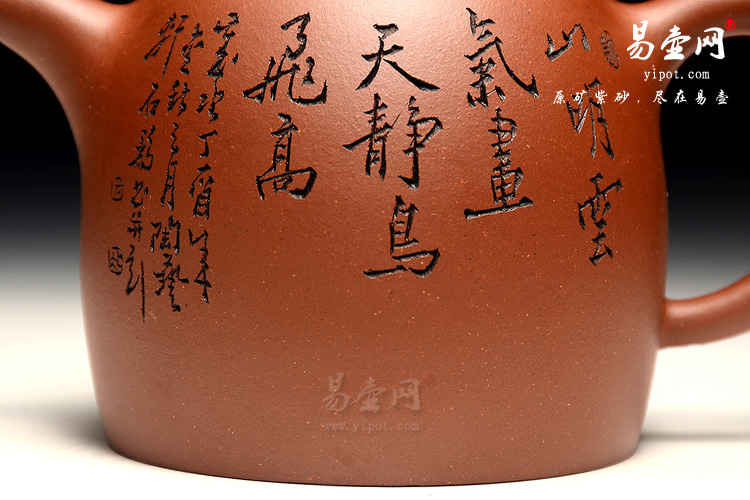 山明雲
氣畫
天靜鳥
飛高
丁酉
之月陶藝
石
書并刻
易壶网®
yipot.com
原矿紫砂，尽在易壶
易壶网
www.yipot.com